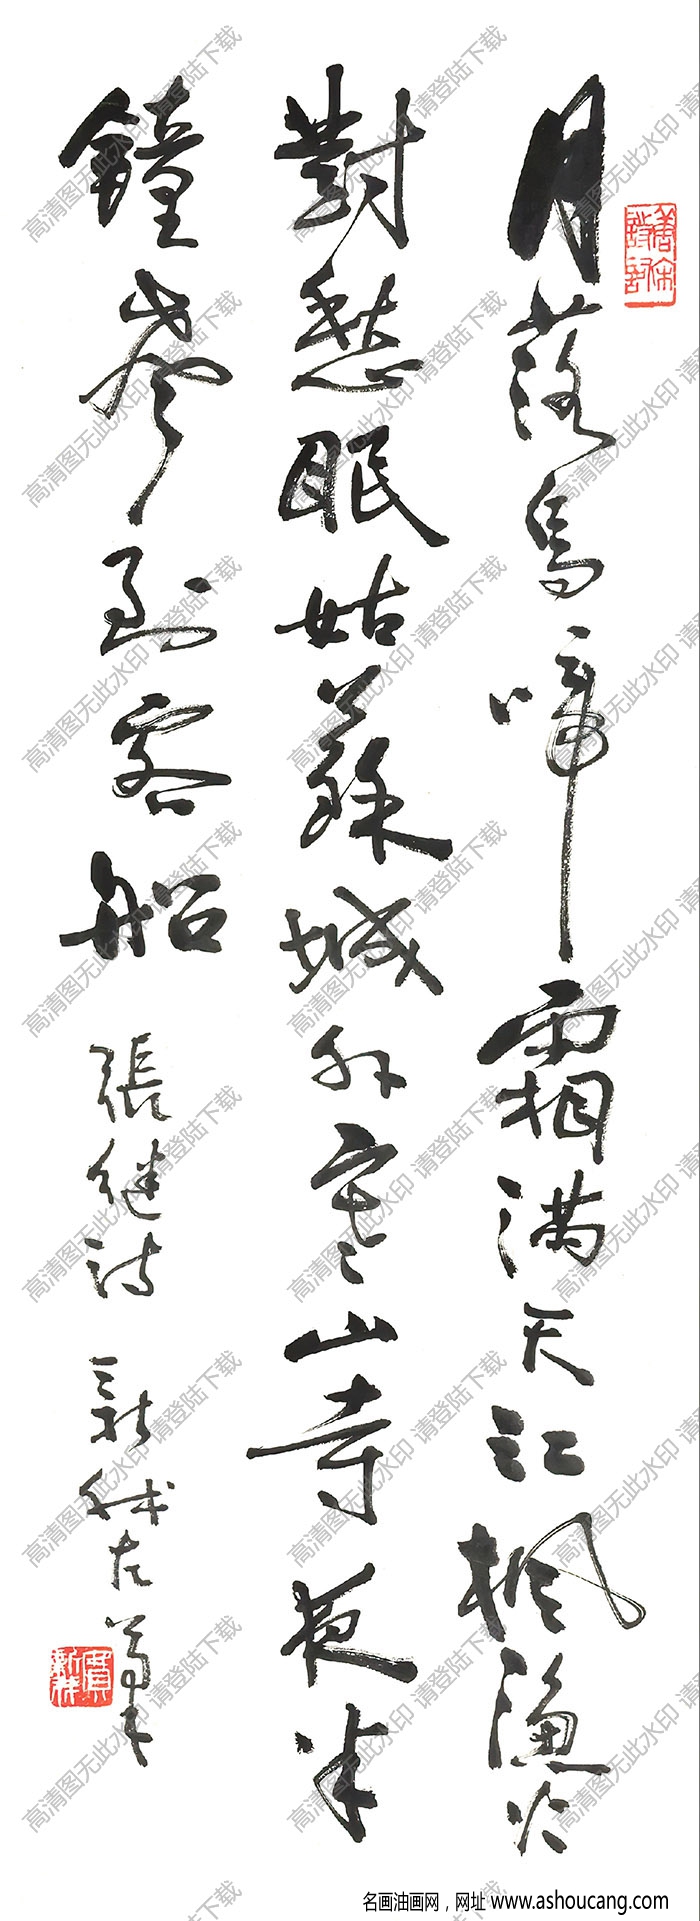 月落烏啼霜满天江楓漁火
對愁眠姑蘇城外寒山寺夜半
鐘聲到客船 張继詩 新林左筆
高清图无此水印 请登陆下载
名画油画网，网址 www.ashoucang.com